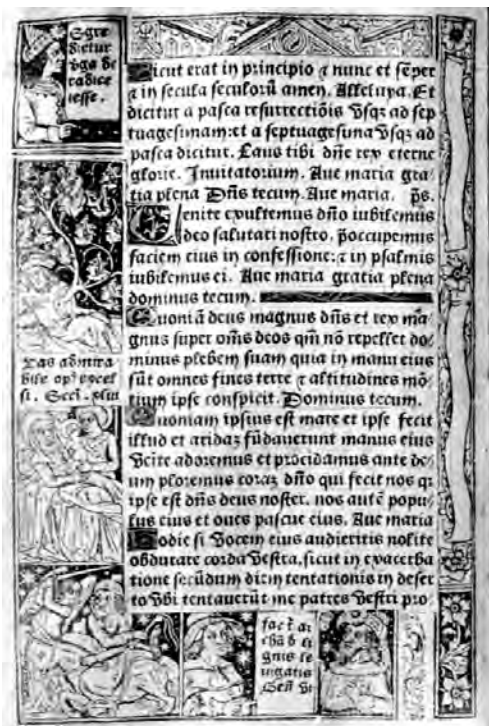 Egre
dietur
Ṽga de
radice
iesse.
Sicut erat in principio ⁊ nunc et sēper
⁊ in secula seculorū amen. Alleluya. Et
dicitur a pasca resurrectiōis Vsqȝ ad sep
tuagesimam: et a septuagesima Vsqȝ ad
pasca dicitur. Laus tibi dn̄e rex eterne
glorie. Inuitatorium. Aue maria gra/
tia plena Dn̄s tecum. Aue maria. p̄s.
Uenite exultemus dn̄o iubilemus
deo salutari nostro. p̄occupemus
faciem eius in confessione: ⁊ in psalmis
iubilemus ei. Aue maria gratia plena
dominus tecum.
Quoniā deus magnus dn̄s et rex ma/
gnus super om̄s deos qm̄ nō repellet do/
minus plebem suam quia in manu eius
sūt omnes fines terre ⁊ altitudines mō/
tium ipse conspicit. Dominus tecum.
Quoniam ipsius est mare et ipse fecit
illud et aridaȝ fūdauerunt manus eius
Venite adoremus et procidamus ante de/
um ploremus coraȝ dn̄o qui fecit nos qr
ipse est dn̄s deus noster. nos autē popu/
lus eius et oues pascue eius. Aue maria
Hodie si Vocem eius audieritis nolite
obdurare corda Vestra, sicut in exacerba
tione secūdum diem tentationis in deser
to Vbi tentauerūt me patres Vestri pro
bile
facē ar
signis